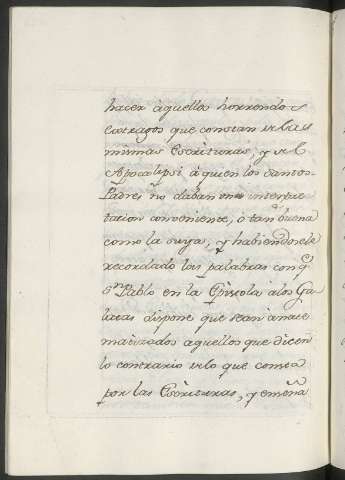 hacer àquellos horrendos
estragos que constan de las
mismas Escrituras, y del
Apocalipsi à quien los Santos
Padres no daban una interpre
tacion conveniente, ò tan buena
como la suya, y habiendosele
recordado las palabras con q.
Sn. Pablo en la Epistola à los Ga
latas dispone que sean anate
matizados aquellos que dicen
lo contrario de lo que consta
por las Escrituras, y